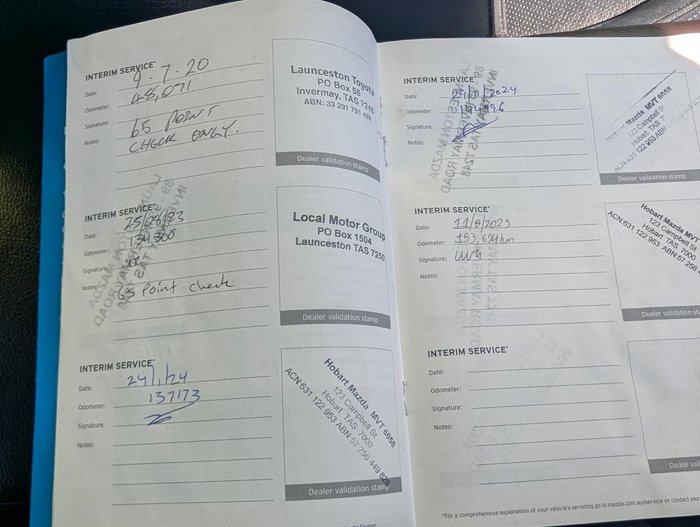 INTERIM SERVICE*
Date: 9.7.20
Odometer: 48,071
Signature: 65 POINT
Notes: CHECK ONLY.
Launceston Toyota
PO Box 58
Invermay, TAS 7248
ABN: 33 291 791 469
Dealer validation stamp
INTERIM SERVICE*
Date: 25/08/23
Odometer: 134300
Signature:
Notes: 65 Point check
Local Motor Group
PO Box 1504
Launceston TAS 7250
Dealer validation stamp
INTERIM SERVICE*
Date: 24/1/24
Odometer: 137173
Signature:
Notes:
Hobart Mazda MVT 6068
123 Campbell St
Hobart TAS 7000
ACN 631 122 953 ABN 57 256 449 828
Dealer validation stamp
INTERIM SERVICE*
Date: 2024
Odometer:
Signature:
Notes:
Hobart Mazda MVT 6068
123 Campbell St
Hobart TAS
ACN 631 122 953 ABN
Dealer validation stamp
INTERIM SERVICE*
Date: 11/8/2025
Odometer:
Signature:
Notes:
Hobart Mazda MVT
123 Campbell St
Hobart TAS 7000
ACN 631 122 953 ABN 57 256
Dealer validation stamp
INTERIM SERVICE*
Date:
Odometer:
Signature:
Notes:
Dealer
*For a comprehensive explanation of your vehicle's servicing go to mazda.com.au/service or contact your